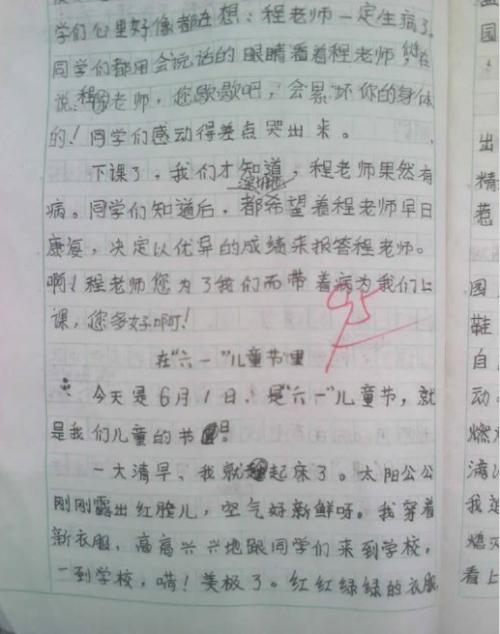 学们心里好像都在想：程老师一定生病了
同学们都用会说话的眼睛看着程老师，似在
说：程老师，您歇歇吧，会累坏你的身体
的！同学们感动得差点哭出来。
下课了，我们才知道，程老师果然有
病。同学们知道后，都希望着程老师早日
康复，决定以优异的成绩来报答程老师。
啊！程老师您为了我们而带着病为我们上
课，您多好啊！
95
在“六一”儿童节里
今天是6月1日，是“六一”儿童节，就
是我们儿童的节日。
一大清早，我就起床了。太阳公公
刚刚露出红脸儿，空气好新鲜呀。我穿着
新衣服，高高兴兴地跟同学们来到学校，
一到学校，嗬！美极了。红红绿绿的衣服
园
出
精
惹
园
鞋
自
动
燃
滴
我
熄灭
看上